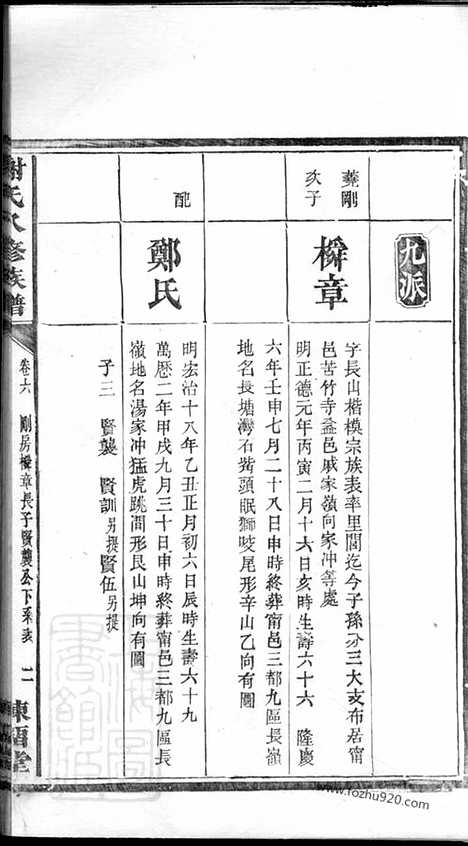 九派
彝剛
次子
橓章
字長山楷模宗族表率里閭迄今子孫分三大支布居甯
邑苦竹寺益邑戚家嶺向家冲等處
明正德元年丙寅二月十六日亥時生壽六十六 隆慶
六年壬申七月二十八日申時終葬甯邑三都九區長嶺
地名長塘灣石觜頭眠獅咬尾形辛山乙向有圖
配
鄭氏
明宏治十八年乙丑正月初六日辰時生壽六十九
萬歷二年甲戌九月三十日申時終葬甯邑三都九區長
嶺地名湯家冲猛虎跳澗形艮山坤向有圖
子三 賢襲 賢訓另提 賢伍另提
謝氏八修族譜
卷六 剛房橓章長子賢襲公下系表 二
東山堂
www.fozhu920.com